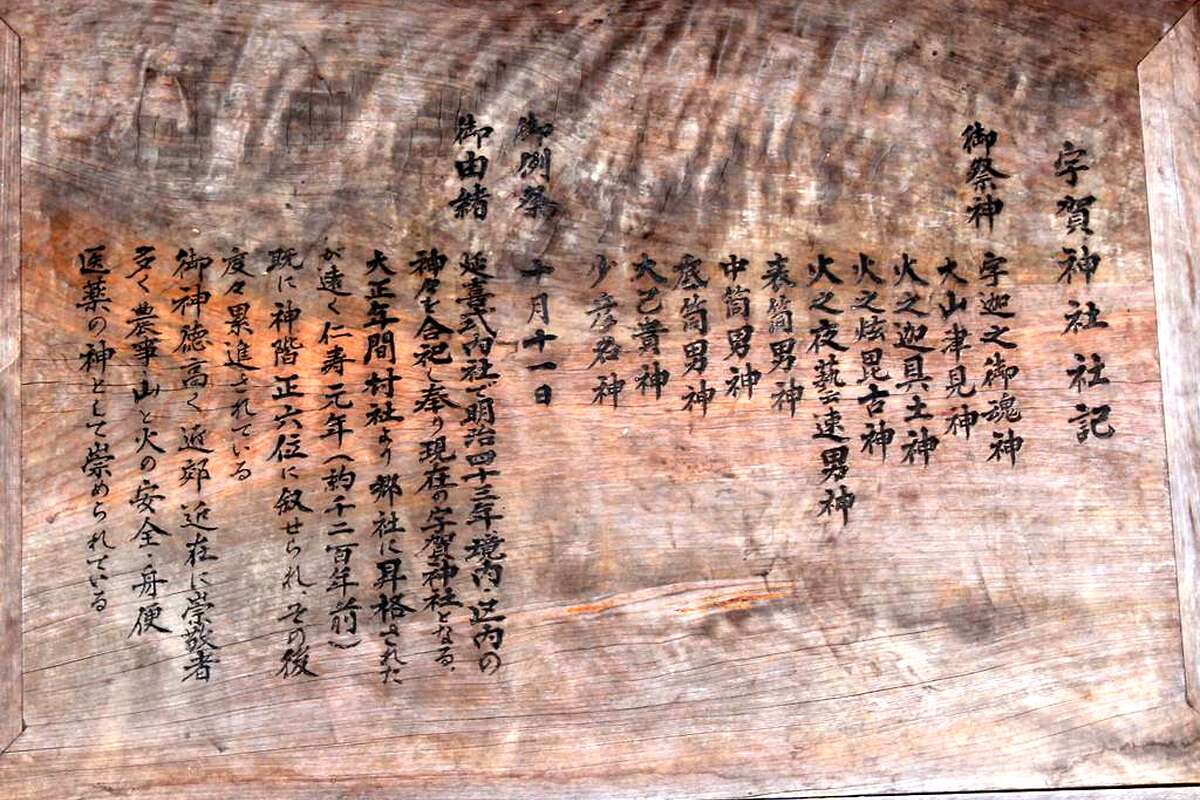 宇賀神社社記
御祭神 宇迦之御魂神
大山津見神
火之迦具土神
火之炫毘古神
火之夜藝速男神
表筒男神
中筒男神
底筒男神
大己貴神
少彦名神
御例祭 十月十一日
御由緒 延喜式内社で明治四十三年境内・区内の
神々を合祀し奉り現在の宇賀神社となる.
大正年間村社より郷社に昇格された
が遠く仁寿元年(約千二百年前)
既に神階正六位に叙せられ、その後
度々累進されている
御神徳高く近郊近在に崇敬者
多く農事山と火の安全・舟便
医薬の神として崇められている